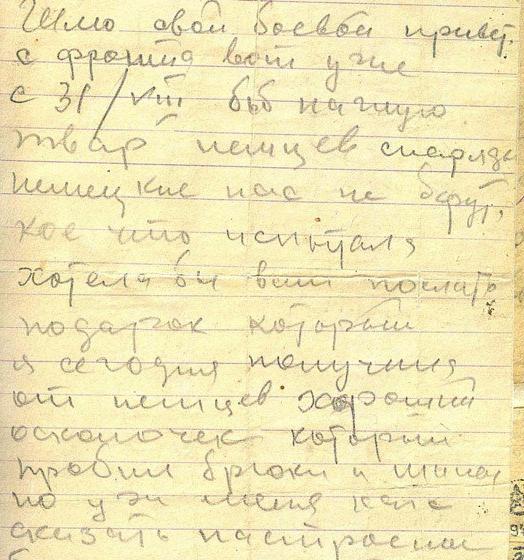 Шлю свой боевой привет
с фронта вот уже
с 31/VIII бьб наглую
тварь немцев снаряды
немецкие нас не берут,
кое что испытала
хотела бы вам послать
подарок который
я сегодня получила
от немцев хороший
осколочек который
пробил брюки и
но уж меня как
сказать настроение